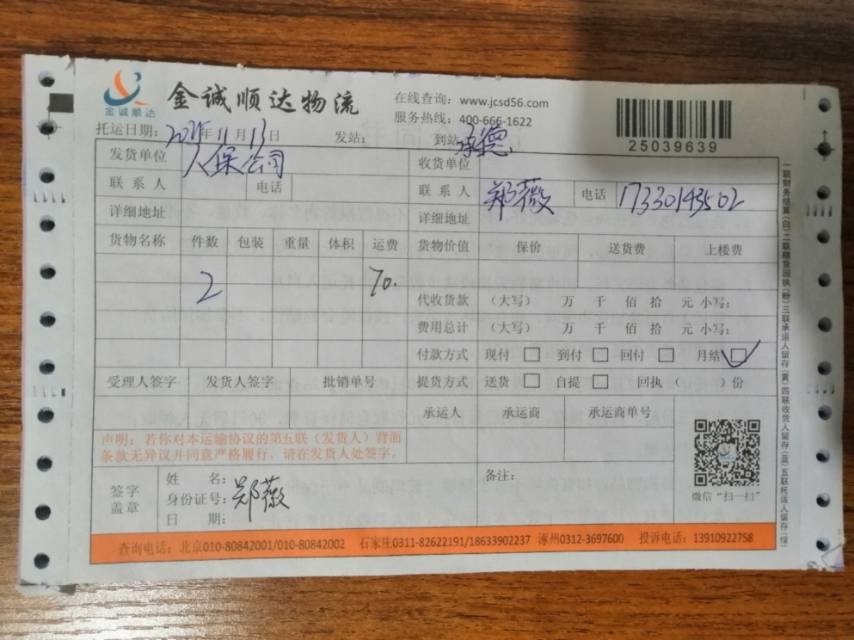 金诚顺达
金诚顺达物流
在线查询：www.jcsd56.com
服务热线：400-666-1622
25039639
托运日期：2025年11月13日 发站： 到站：承德
发货单位 人保公司 收货单位
联系人 电话 联系人 郑薇 电话 17330143502
详细地址 详细地址
货物名称 件数 包装 重量 体积 运费 货物价值 保价 送货费 上楼费
2 70.
代收货款 （大写） 万 千 佰 拾 元 小写：
费用总计 （大写） 万 千 佰 拾 元 小写：
付款方式 现付 到付 回付 月结
受理人签字 发货人签字 批销单号 提货方式 送货 自提 回执（ ）份
承运人 承运商 承运商单号
声明：若你对本运输协议的第五联（发货人）背面
条款无异议并同意严格履行，请在发货人处签字。
签字
盖章
姓 名：
身份证号：郑薇
日 期：
备注：
微信“扫一扫”
查询电话：北京010-80842001/010-80842002 石家庄0311-82622191/18633902237 涿州0312-3697600 投诉电话：13910922758